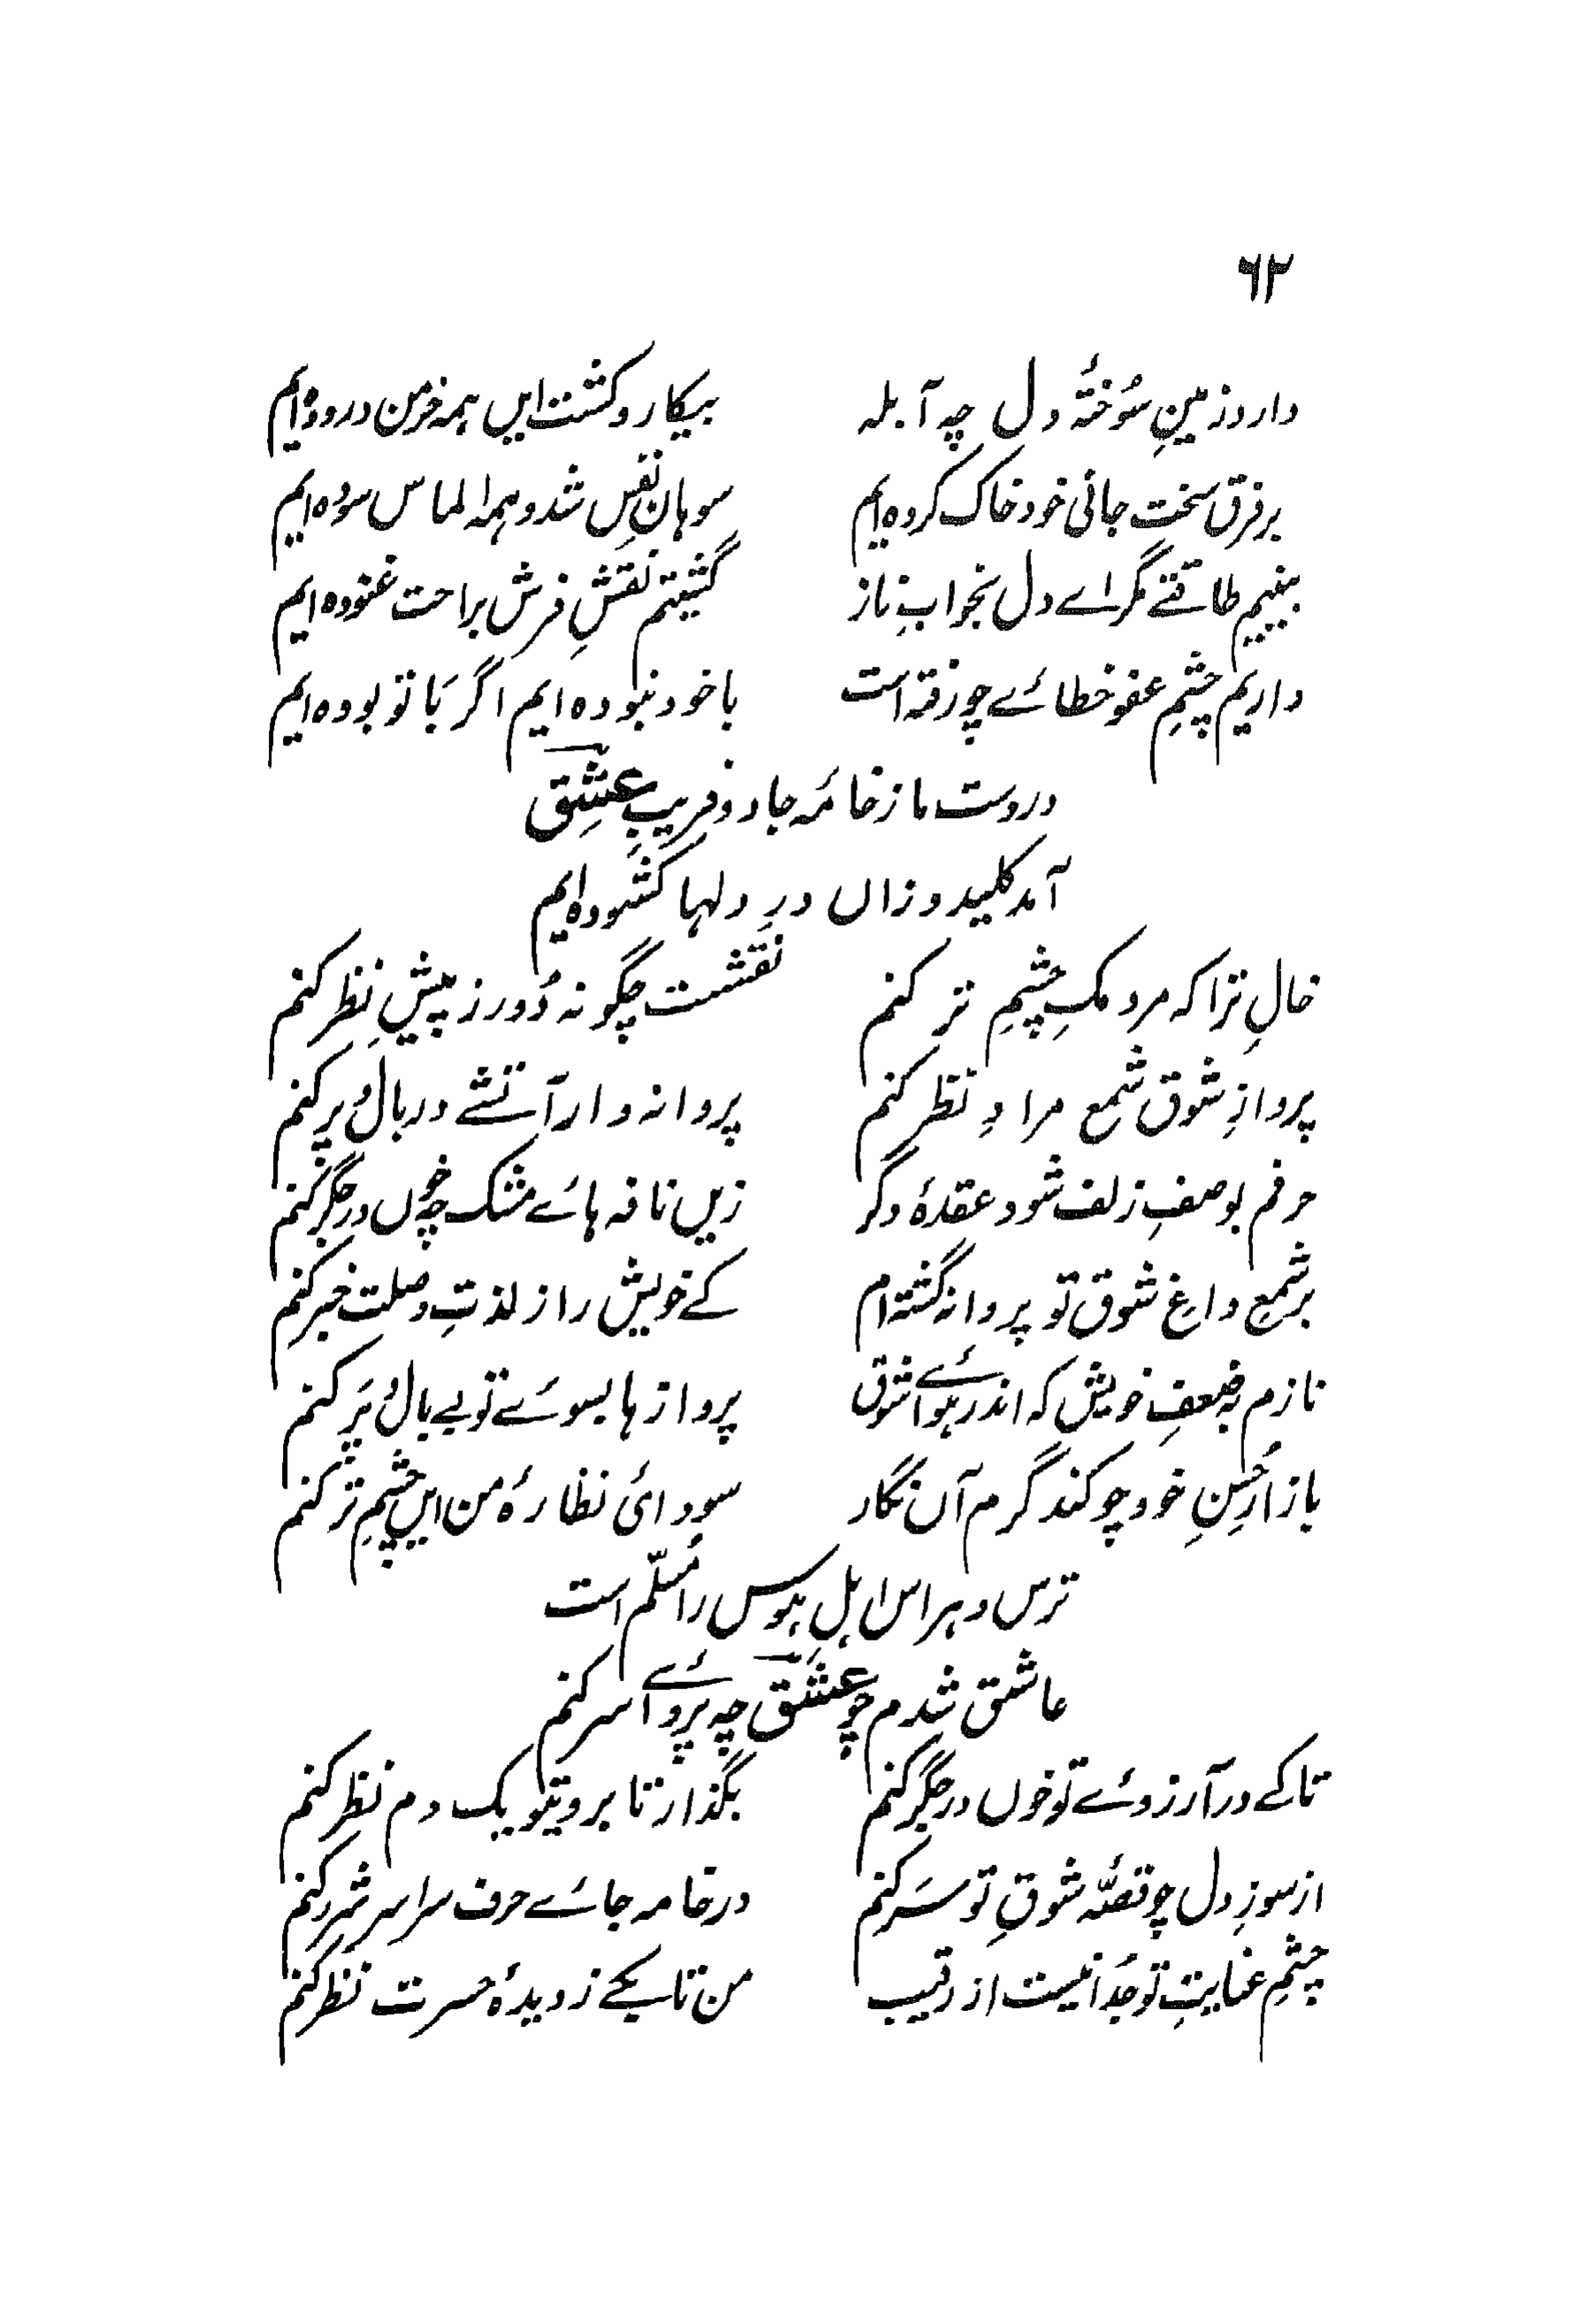 ۶۲
دارد زمینِ سُوختۂ دل چہ آبلہ بیکار و کشت ایں ہمہ خرمن درودہ ایم
بر فرق سخت جانی خود خاک کردہ ایم سوہان نفس شد و ہمہ الماس سودہ ایم
بینیم طاقتے مگر اے دل بخوابِ ناز گشتیم نقشِ فرش براحت غنودہ ایم
داریم چشمِ عفو خطائے چو رفتہ است با خود نبودہ ایم اگر بَا تو بودہ ایم
در دست ما ز خامۂ جادو فریبِ عشِق
آمد کلید و زاں درِ دلہا کشودہ ایم
خالِ ترا کہ مردمکِ چشمِ تر کنم نقشت چگونہ دُور ز پیشِ نظر کنم
پروازِ شوق شمع مرادِ نظر کنم پروانہ وار آتشے در بال و پر کنم
حرفم بوصفِ زلف شود عقدۂ دگر زیں نافہ ہائے مشک چہ خوں در جگر کنم
بر شمعِ داغِ شوق تو پروانہ گشتہ ام کے خویش را ز لذتِ وصلت خبر کنم
نازم بہ ضعفِ خویش کہ اندر ہوائے شوق پرواز ہا بسوئے تو بے بال و پَر کنم
بازار حُسنِ خود چو کند گرم آں نگار سودائی نظارۂ من ایں چشمِ تر کنم
ترس و ہراس اہلِ ہوس را مُسلّم است
عاشق شدم چو عشق چہ پروائے سر کنم
تا کے در آرزوئے تو خوں در جگر کنم بگذار تا برو یتو یک دم نظر کنم
از سوزِ دل چو قصّۂ شوقِ تو سَر کنم در خامہ جائے حرف سراسر شرر کنم
چشمِ عنایتِ تو جُدا نیست از رقیب من تا بکے ز دیدۂ حسرت نظر کنم